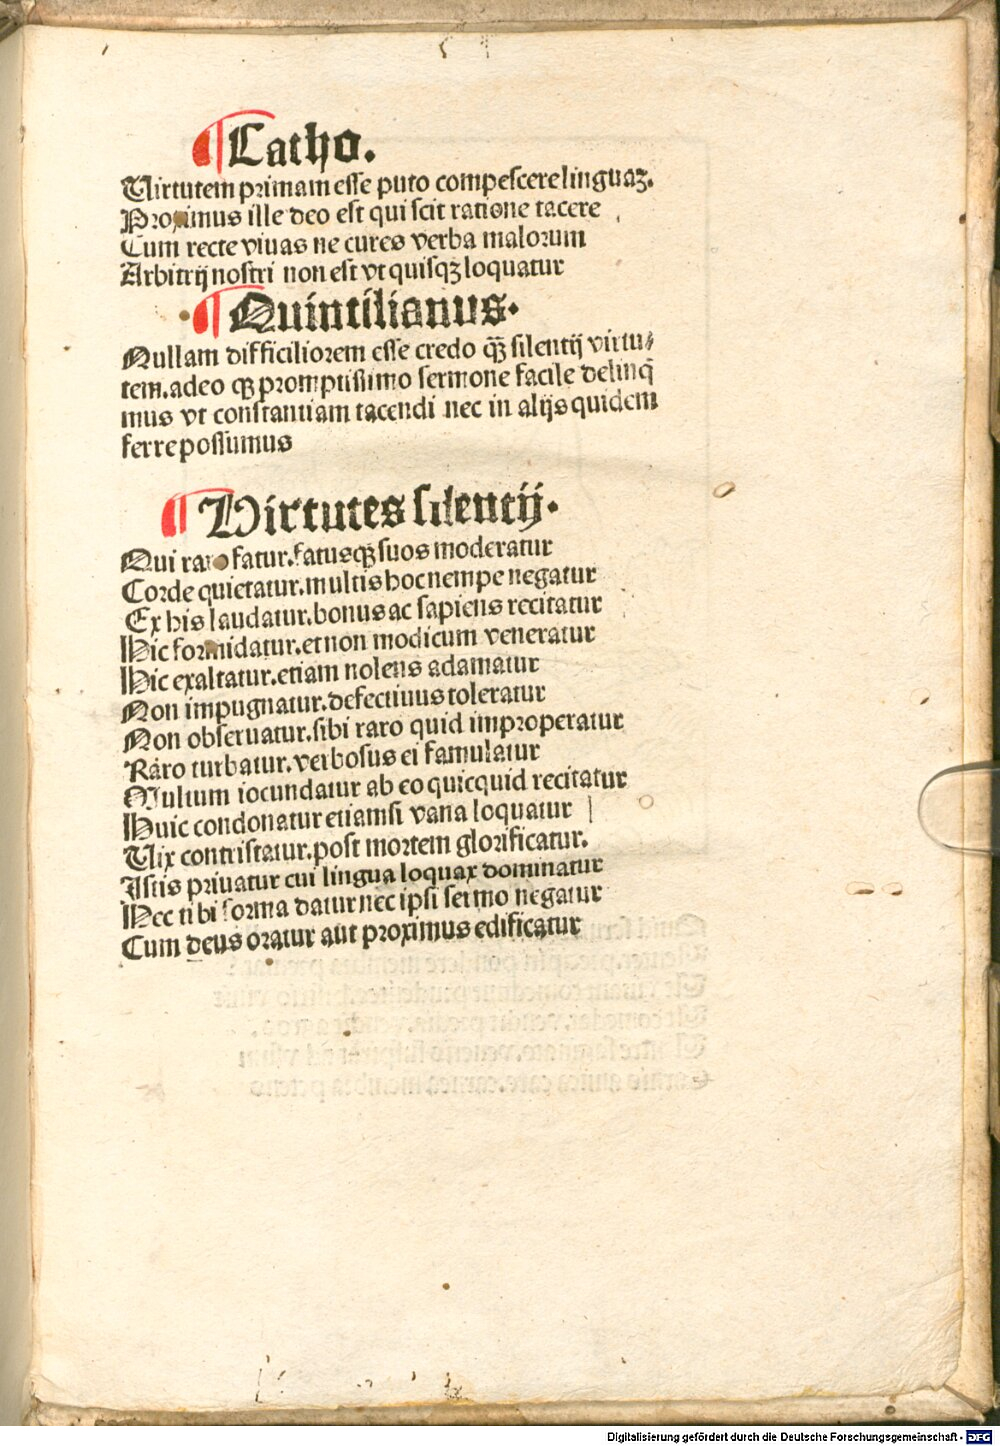 ¶ Catho.
Uirtutem primam esse puto compescere linguaꝫ.
Proximus ille deo est qui scit ratione tacere
Cum recte viuas ne cures verba malorum
Arbitrij nostri non est vt quisqꝫ loquatur
¶ Quintilianus.
Nullam difficiliorem esse credo qꝫ̄ silentij virtu⸗
tem. adeo qꝫ promptissimo sermone facile delinq̄
mus vt constantiam tacendi nec in alijs quidem
ferre possumus
¶ Virtutes silentij.
Qui raro fatur. fatusqꝫ suos moderatur
Corde quietatur. multis hoc nempe negatur
Ex his laudatur. bonus ac sapiens recitatur
Hic formidatur. et non modicum veneratur
Hic exaltatur. etiam nolens adamatur
Non impugnatur. defectiuus toleratur
Non obseruatur. sibi raro quid improperatur
Raro turbatur. verbosus ei famulatur
Multum iocundatur ab eo quicquid recitatur
Huic condonatur etiamsi vana loquatur
Uix contristatur. post mortem glorificatur.
Istis priuatur cui lingua loquax dominatur
Nec tibi forma datur nec ipsi sermo negatur
Cum deus oratur aut proximus edificatur
Digitalisierung gefördert durch die Deutsche Forschungsgemeinschaft - DFG